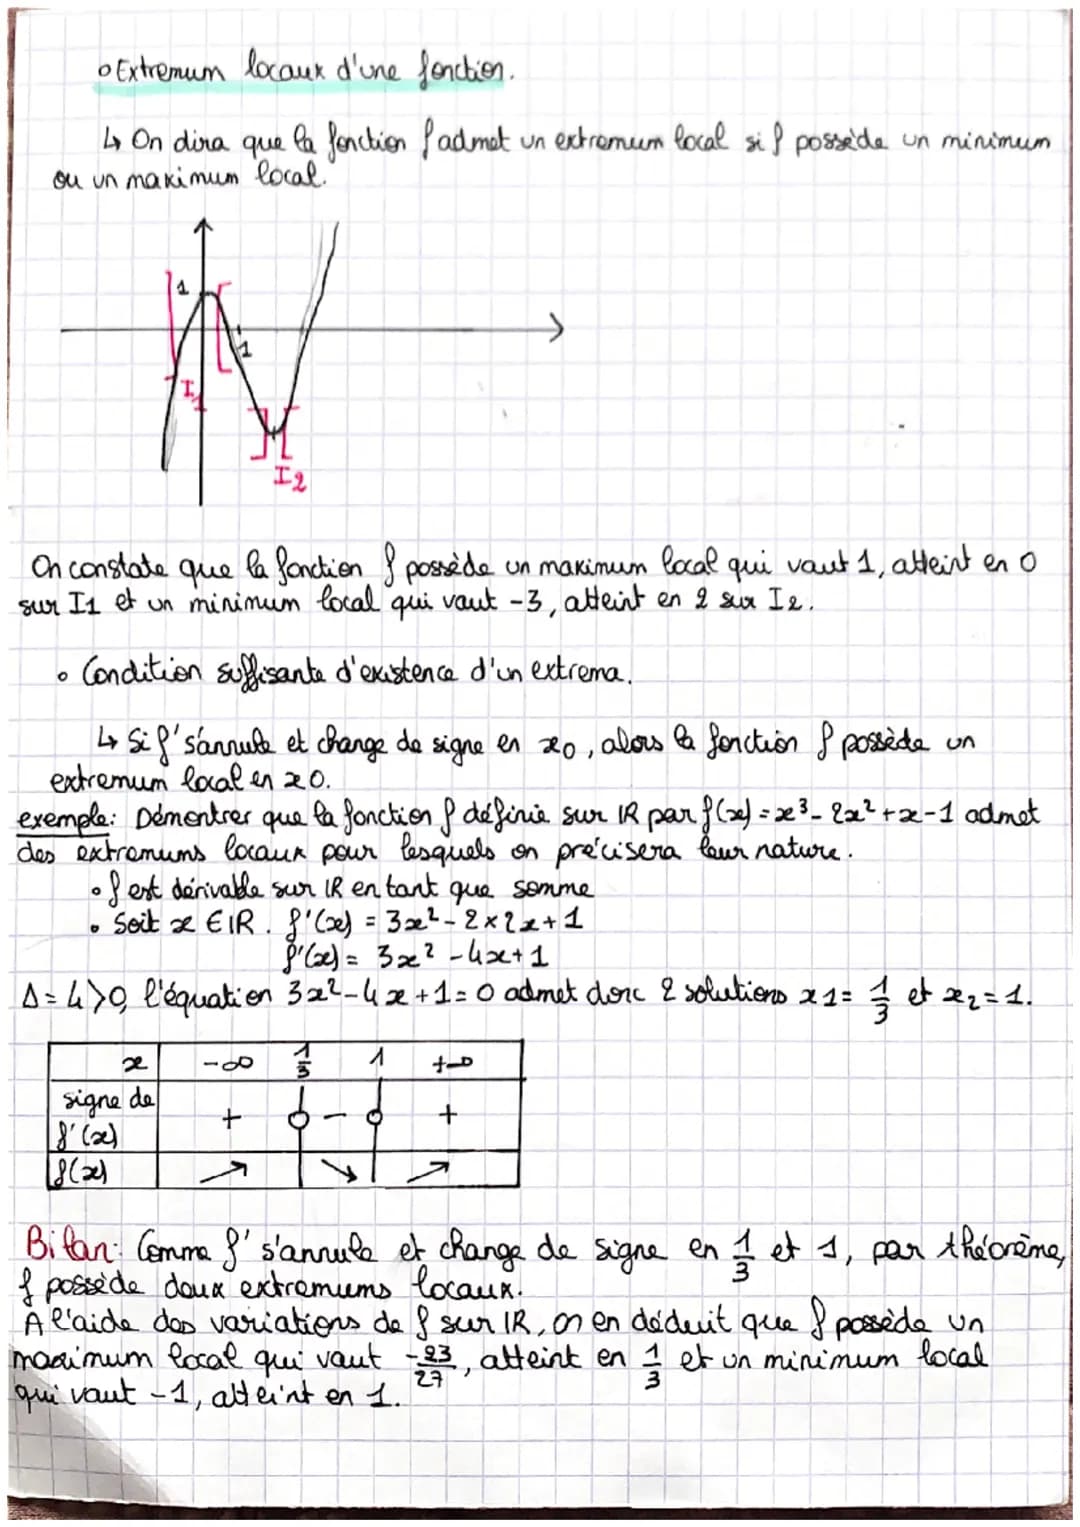 o Extremum locaux d'une fonction.
↳ On dira que la fonction f admet un extremum local si f possède un minimum
ou un maximum local.
1
1
I1
I2
On constate que la fonction f possède un maximum local qui vaut 1, atteint en 0
sur I1 et un minimum local qui vaut -3, atteint en 2 sur I2.
• Condition suffisante d'existence d'un extrema.
↳ Si f' s'annule et change de signe en x0, alors la fonction f possède un
extremum local en x0.
exemple: Démontrer que la fonction f définie sur IR par f(x) = x³ - 2x² + x - 1 admet
des extremums locaux pour lesquels on précisera leur nature.
• f est dérivable sur IR en tant que somme
• Soit x ∈ IR. f'(x) = 3x² - 2×2x + 1
f'(x) = 3x² - 4x + 1
Δ = 4 > 0, l'équation 3x² - 4x + 1 = 0 admet donc 2 solutions x1 = 1/3 et x2 = 1.
x -∞ 1/3 1 +∞
signe de
f'(x) + 0 - 0 +
f(x) ↗ ↘ ↗
Bilan: Comme f' s'annule et change de signe en 1/3 et 1, par théorème,
f possède deux extremums locaux.
A l'aide des variations de f sur IR, on en déduit que f possède un
maximum local qui vaut -23/27, atteint en 1/3 et un minimum local
qui vaut -1, atteint en 1.